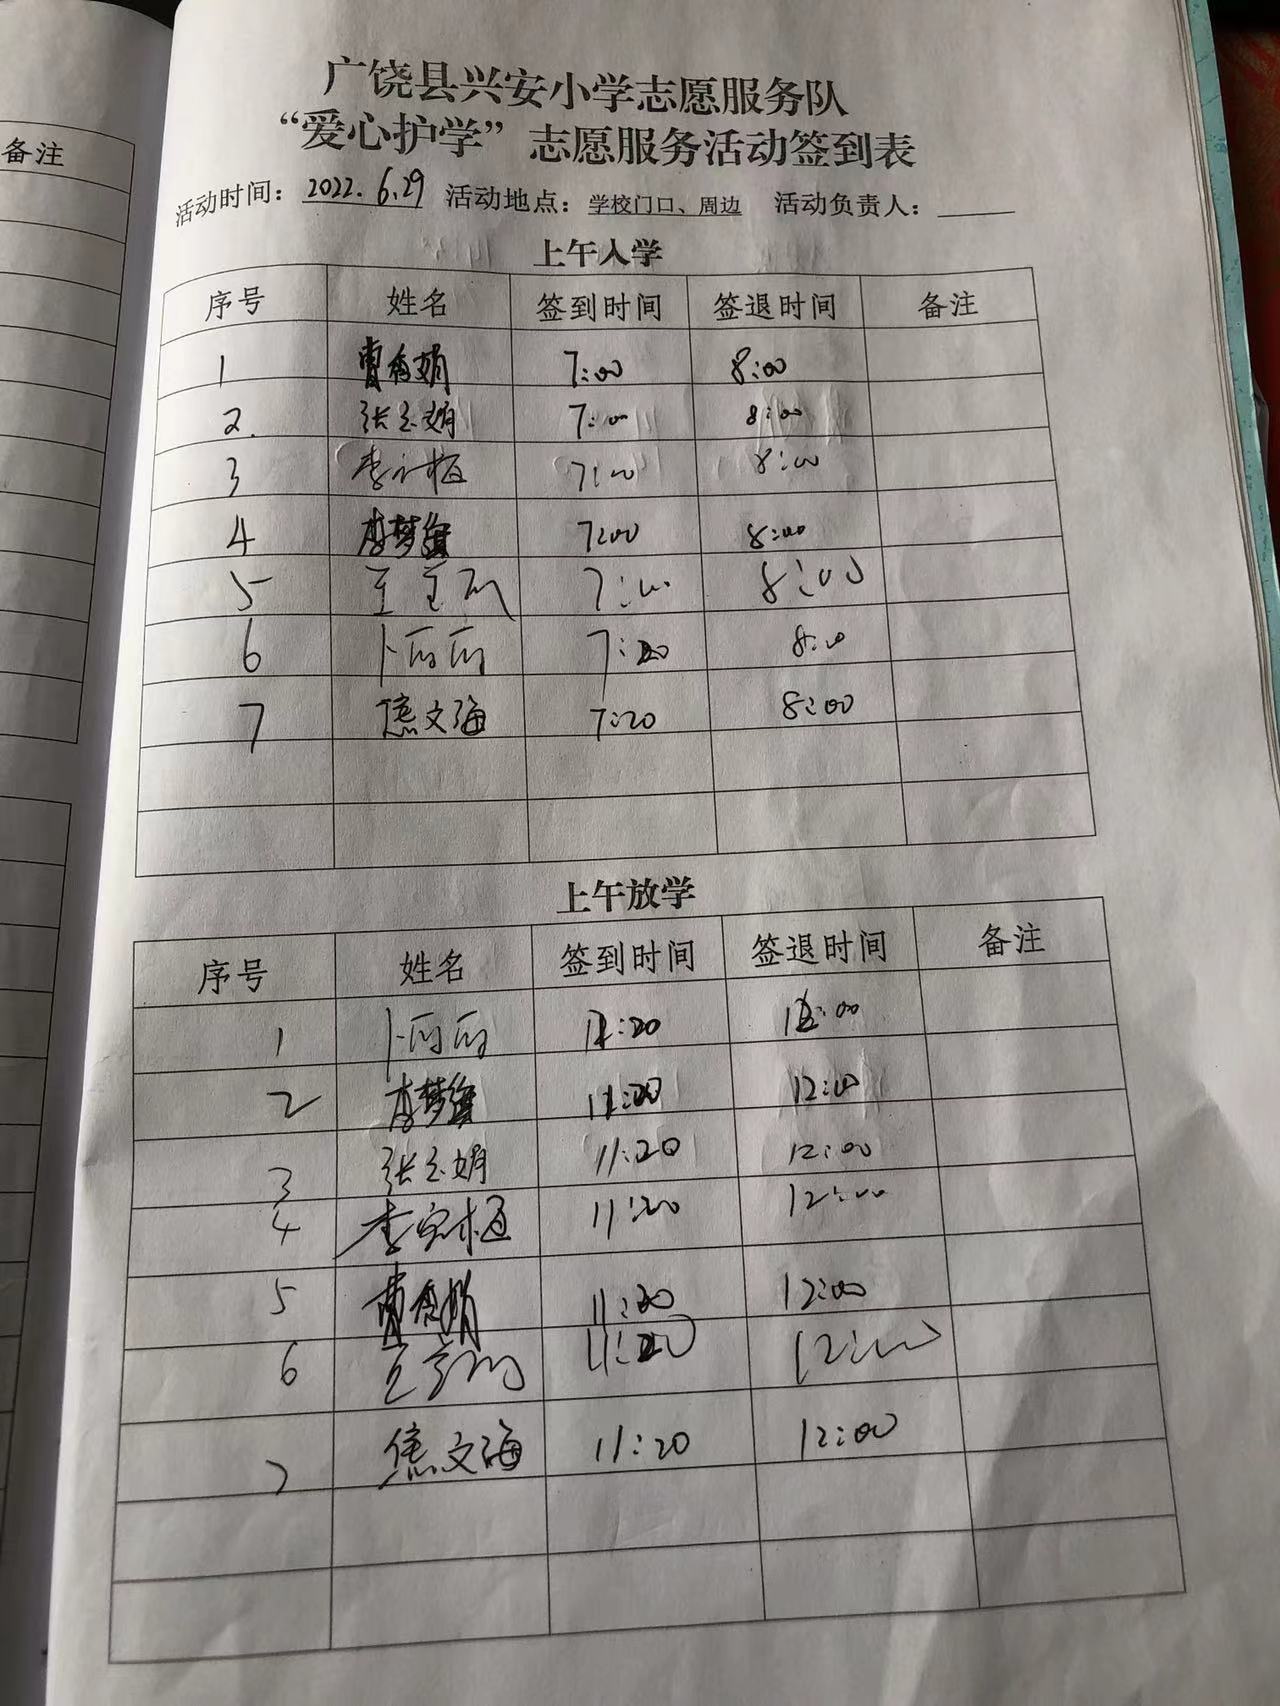 备注
广饶县兴安小学志愿服务队
“爱心护学”志愿服务活动签到表
活动时间：2022.6.29 活动地点：学校门口、周边 活动负责人：
上午入学
序号 姓名 签到时间 签退时间 备注
1 7:00 8:00
2. 张玉娟 7:00 8:00
3 7:00 8:00
4 7:00 8:00
5 7:00 8:00
6 卜丽丽 7:20 8:00
7 焦文海 7:20 8:00
上午放学
序号 姓名 签到时间 签退时间 备注
1 卜丽丽 11:20 12:00
2 11:20 12:00
3 张玉娟 11:20 12:00
4 11:20 12:00
5 11:20 12:00
6 11:20 12:00
7 焦文海 11:20 12:00